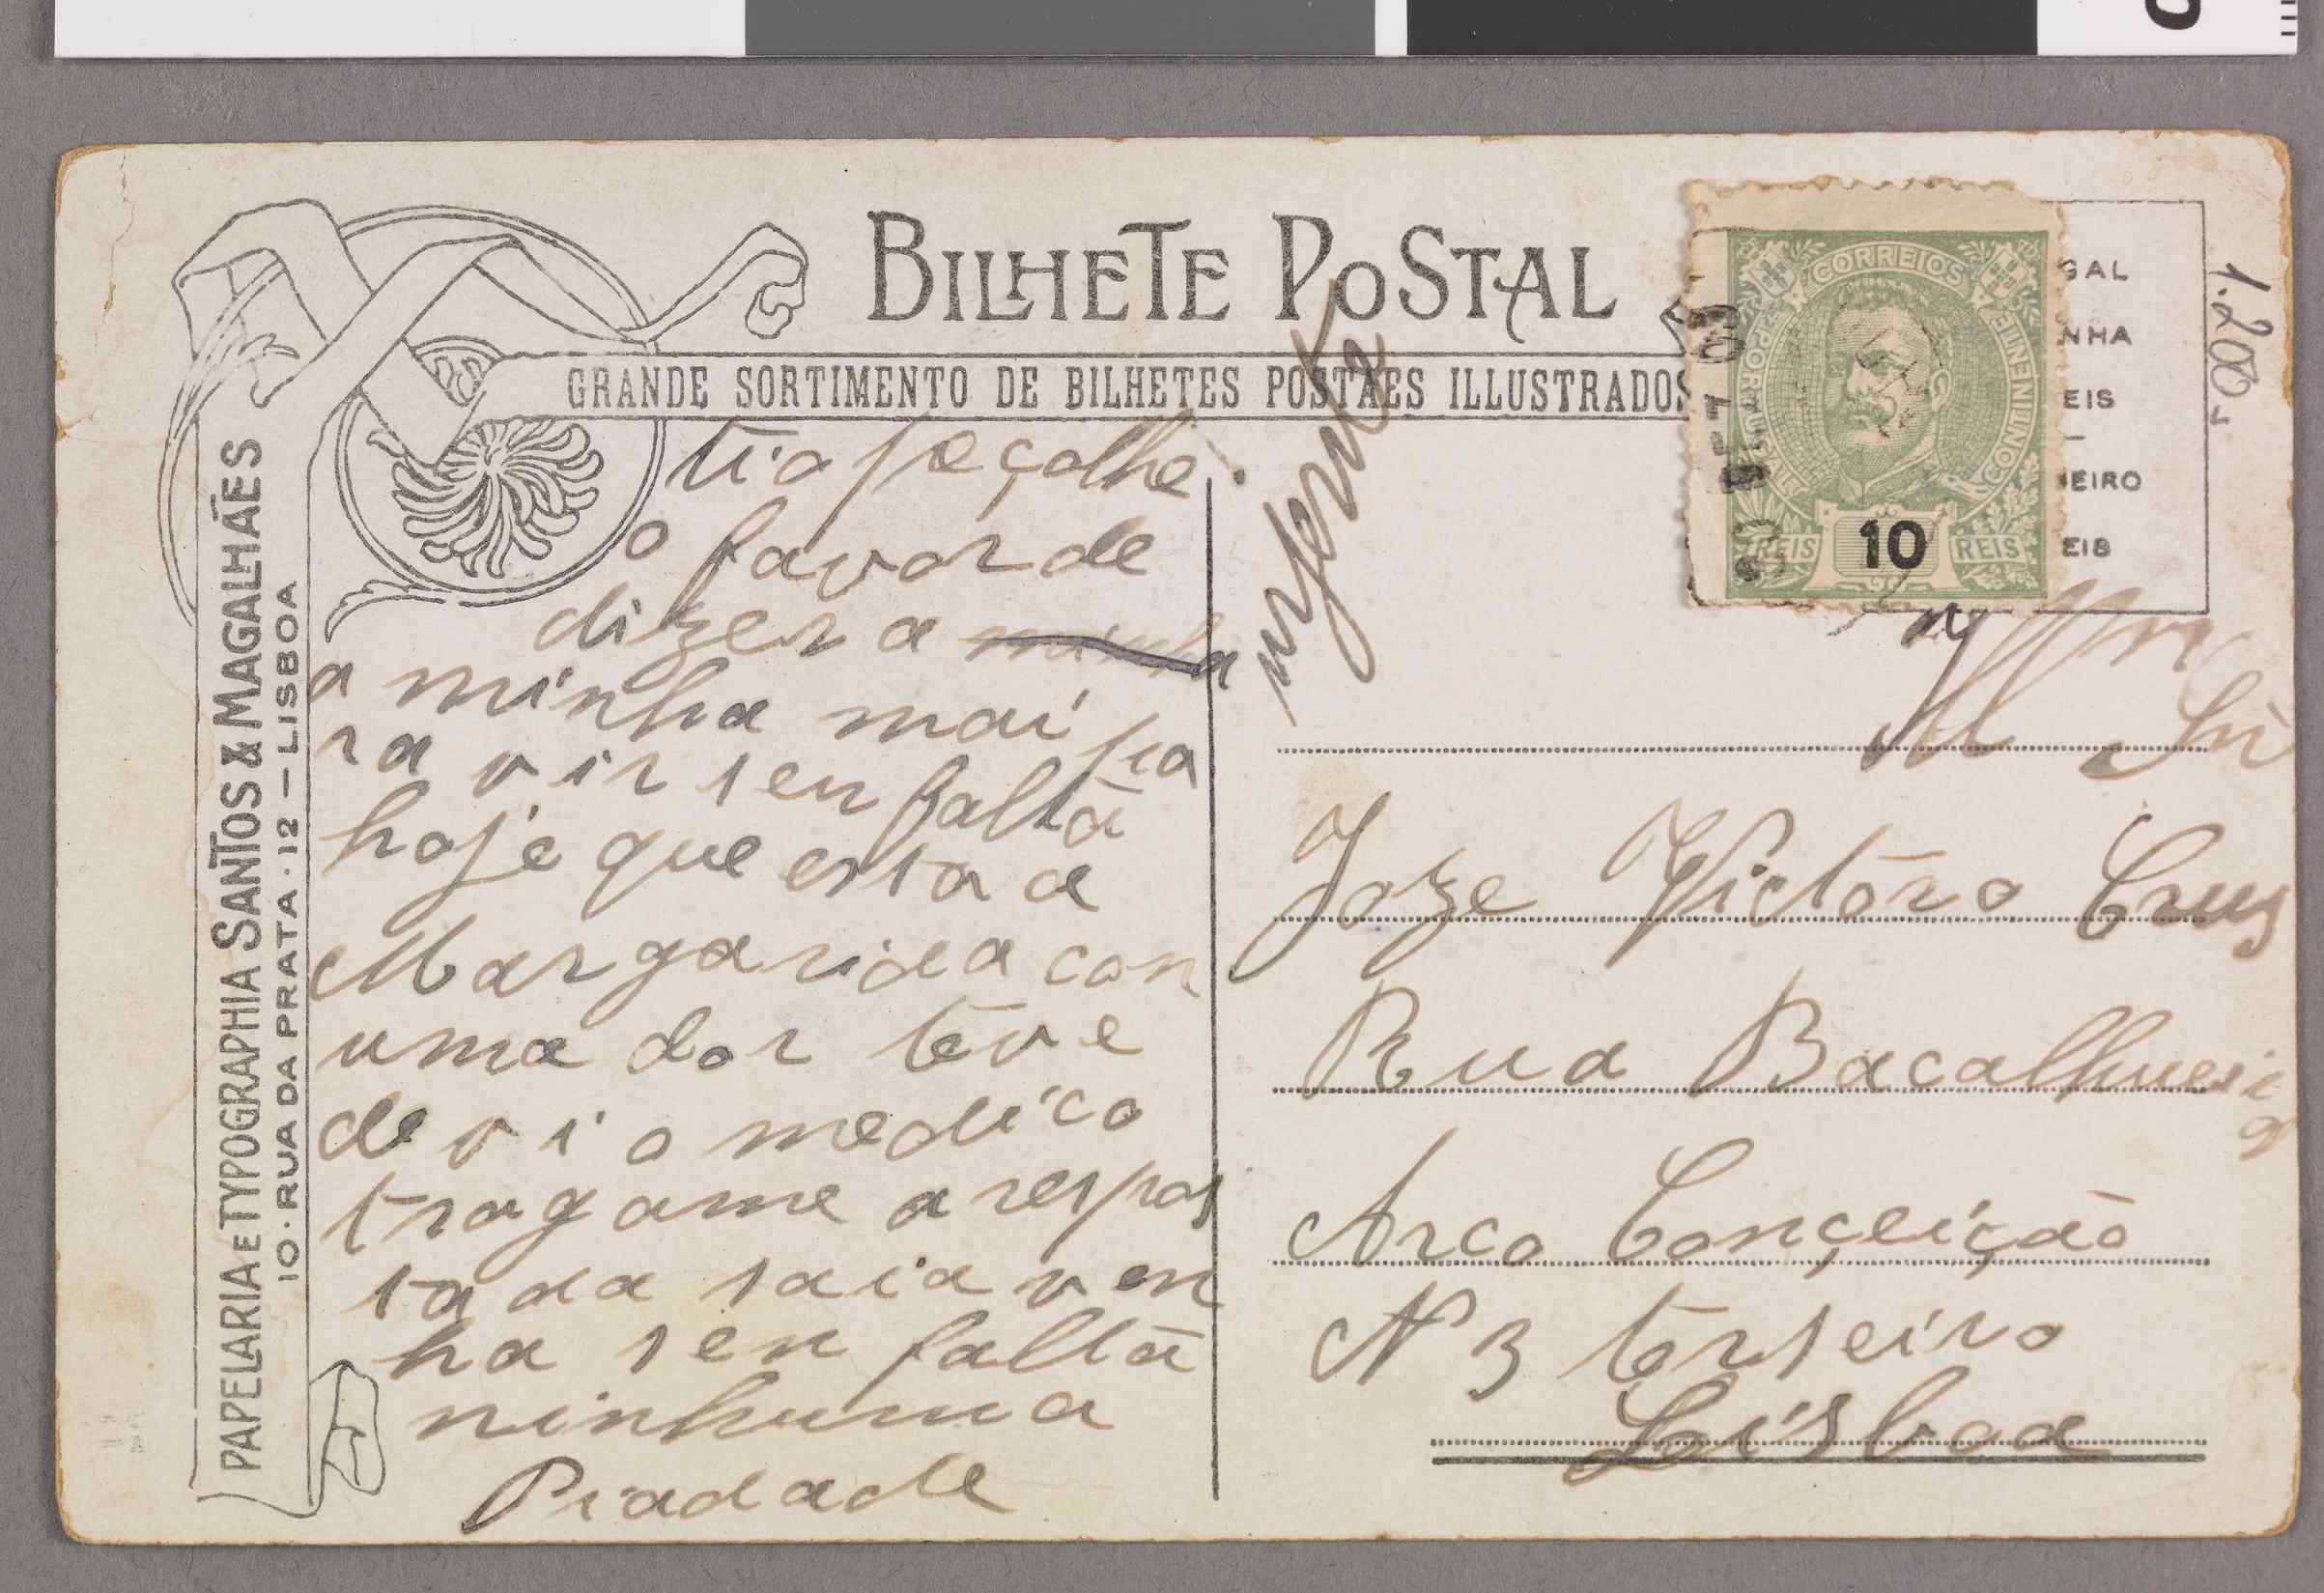 BILHETE POSTAL
GRANDE SORTIMENTO DE BILHETES POSTAES ILLUSTRADOS
PAPELARIA E TYPOGRAPHIA SANTOS & MAGALHÃES
10 · RUA DA PRATA · 12 – LISBOA
tia peçolhe
o favor de
dizer a minha
a minha mai pa
ra vir sen falta
hoje que esta a
Margarida con
uma dor teve
de vi o medico
tragame a respos
ta da saia ven
ha sen falta
ninhuma
Piadade
urjente
CORREIOS
PORTUGAL
CONTINENTE
REIS 10 REIS
GAL
NHA
EIS
EIRO
EIS
1.200
Sñr
Joze Victoro Cruz
Rua Bacalhueiro
Arco Conçeição
N 3 terseiro
Lisboa